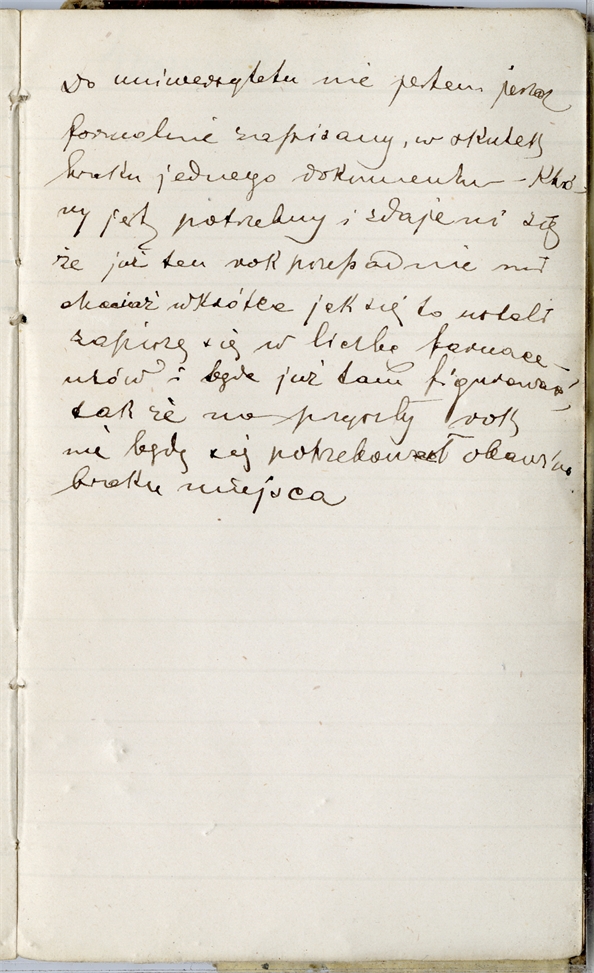 Do uniwersytetu nie jestem jeszcze
formalnie zapisany, w skutek
braku jednego dokumentu – Któ-
ry jest potrzebny i zdaje mi się
że już ten rok przepadnie mi
chociaż wkrótce jak się to ustali
zapiszę się w liczbę farmace-
utów i będę już tam figurować,
tak że na przyszły rok
nie będę się potrzebował obawiać
braku miejsca